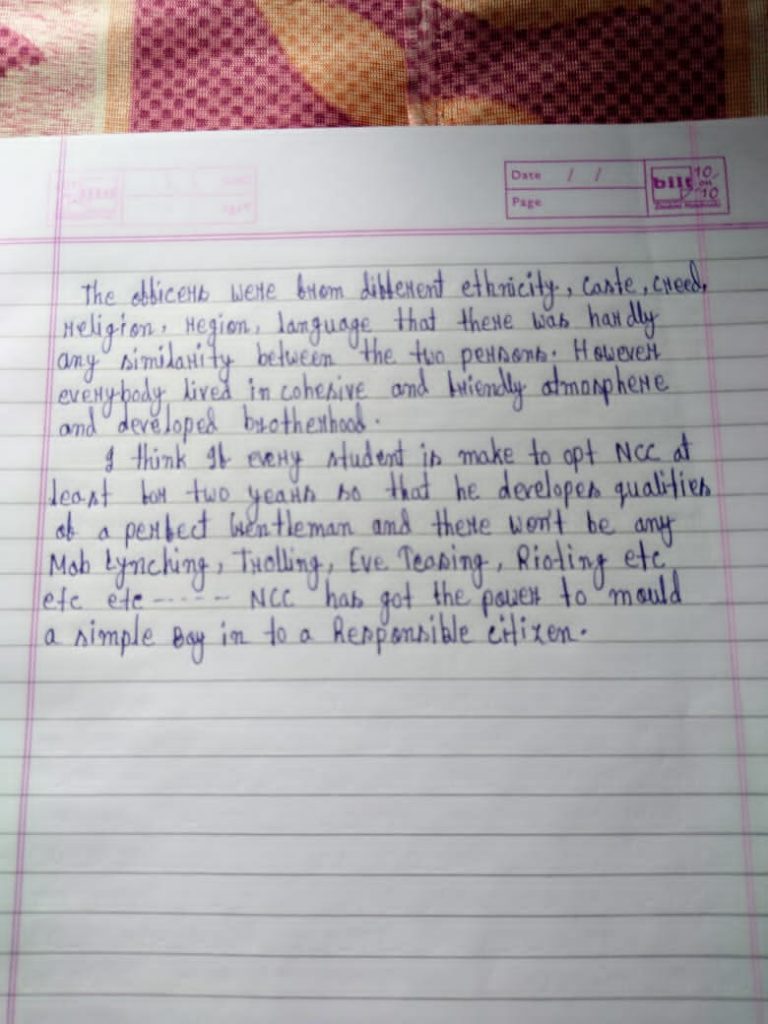 Date / /
Page
bilt 10 on 10
The officers were from different ethnicity, caste, creed,
religion, region, language that there was hardly
any similarity between the two persons. However
everybody lived in cohesive and friendly atmosphere
and developed brotherhood.
I think If every student is make to opt NCC at
least for two years so that he developes qualities
of a perfect Gentleman and there won't be any
Mob Lynching, Trolling, Eve Teasing, Rioting etc
etc etc ------ NCC has got the power to mould
a simple Boy in to a Responsible citizen.